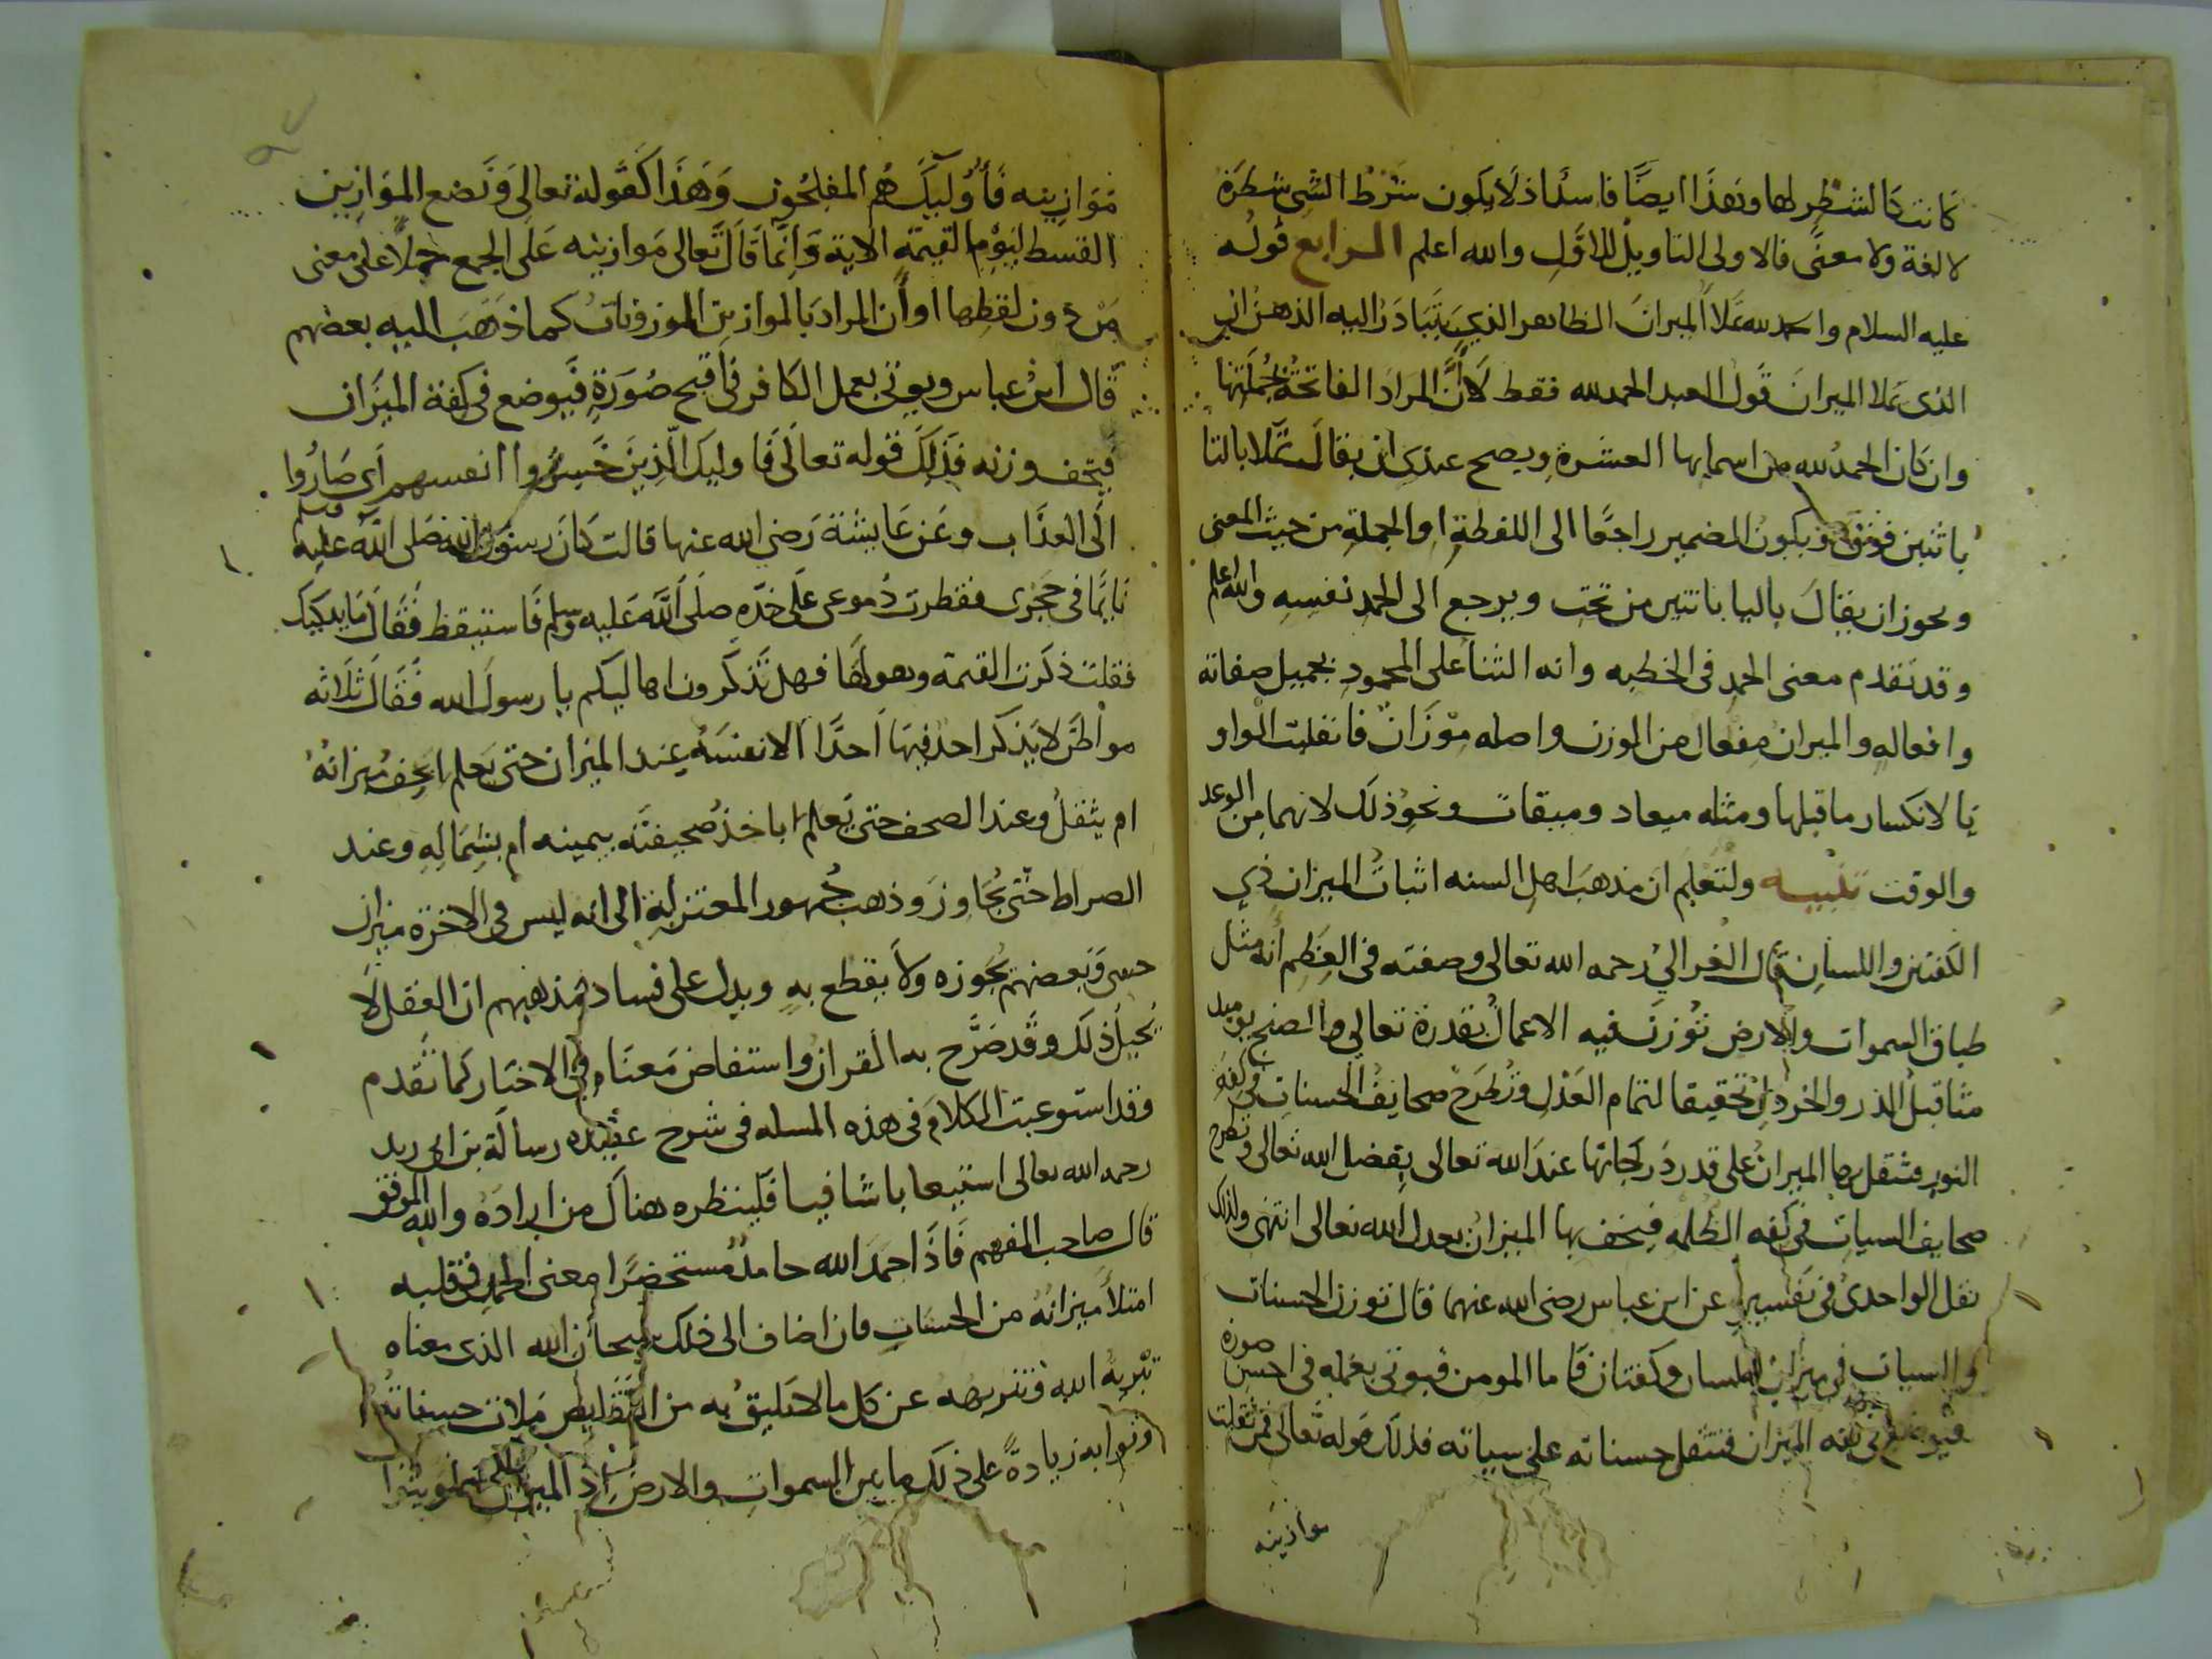 كانت كالشطر لها وهذا ايضا فاسد اذ لا يكون شرط الشي شطره
لا لغة ولا معنى فالاولى التاويل الاول والله اعلم الرابع قوله
عليه السلام والحمد لله تملا الميزان الظاهر الذي يتبادر اليه الذهن ان
الذى يملا الميزان قول العبد الحمد لله فقط لا ان المراد الفاتحة بجملتها
وان كان الحمد لله من اسمايها العشرة ويصح عندى ان يقال تملا بالتا
باثنين فوق ويكون الضمير راجعا الى اللفظة او الجملة من حيث المعنى
ويجوز ان يقال باليا باثنتين من تحت ويرجع الى الحمد نفسه والله اعلم
وقد تقدم معنى الحمد فى الخطبه وانه الثنا على المحمود بجميل صفاته
وافعاله والميزان مفعال من الوزن واصله موزان فانقلبت الواو
يا لانكسار ما قبلها ومثله ميعاد وميقات ونحو ذلك لانهما من الوعد
والوقت تنبيه ولتعلم ان مذهب اهل السنه اثبات الميزان ذي
الكفتين واللسان قال الغزالي رحمه الله تعالى وصفته فى العظم انه مثل
طباق السموات والارض توزن فيه الاعمال بقدرة تعالى والصنج يوميذ
مثاقيل الذر والخردل تحقيقا لتمام العدل وتطرح صحايف الحسنات فى كفة
النور فتثقل بها الميزان على قدر درجاتها عند الله تعالى بفضل الله تعالى وتطرح
صحايف السيات فى كفه الظلمه فيخف بها الميزان بعدل الله تعالى انتهى ولذلك
نقل الواحدى فى تفسيره عن ابن عباس رضى الله عنهما قال توزن الحسنات
والسيات فى ميزان له لسان وكفتان فاما المومن فيوتى بعمله فى احسن صورة
فيوضع فى كفه الميزان فتثقل حسناته على سياته فذلك قوله تعالى فمن ثقلت
موازينه
موازينه فاوليك هم المفلحون وهذا كقوله تعالى ونضع الموازين
القسط ليوم القيمة الاية وانما قال تعالى موازينه على الجمع حملا على معنى
من دون لفظها او ان المراد بالموازين الموزونات كما ذهب اليه بعضهم
قال ابن عباس ويوتى بعمل الكافر فى اقبح صورة فيوضع فى كفة الميزان
فيخف وزنه فذلك قوله تعالى فاوليك الذين خسروا انفسهم اى صاروا
الى العذاب وعن عايشة رضى الله عنها قالت كان رسول الله صلى الله عليه وسلم
نايما فى حجرى فقطرت دموعى على خده صلى الله عليه وسلم فاستيقظ فقال ما يبكيك
فقلت ذكرت القيمة وهولها فهل تذكرون اهاليكم يا رسول الله فقال ثلاثه
مواطن لا يذكر احد فيها احدا الا نفسه عند الميزان حتى يعلم ايخف ميزانه
ام يثقل وعند الصحف حتى يعلم اياخذ صحيفته بيمينه ام بشماله وعند
الصراط حتى يجاوز وذهب جمهور المعتزلة الى انه ليس فى الاخرة ميزان
حسى وبعضهم يجوزه ولا يقطع به ويدل على فساد مذهبهم ان العقل لا
يحيل ذلك وقد صرح به القران واستفاض معناه فى الاخبار كما تقدم
وقد استوعبت الكلام فى هذه المسله فى شرح عقيده رسالة بن ابى زيد
رحمه الله تعالى استيعابا شافيا فلينظره هناك من اراده والله الموفق
قال صاحب المفهم فاذا حمد الله حامد مستحضرا معنى الحمد فى قلبه
امتلا ميزانه من الحسنات فان اضاف الى ذلك سبحان الله الذى معناه
تبريه الله وتنزيهه عن كل ما لا يليق به من النقايص ملات حسناته
وثوابه زيادة على ذلك ما بين السموات والارض اذ الميزان